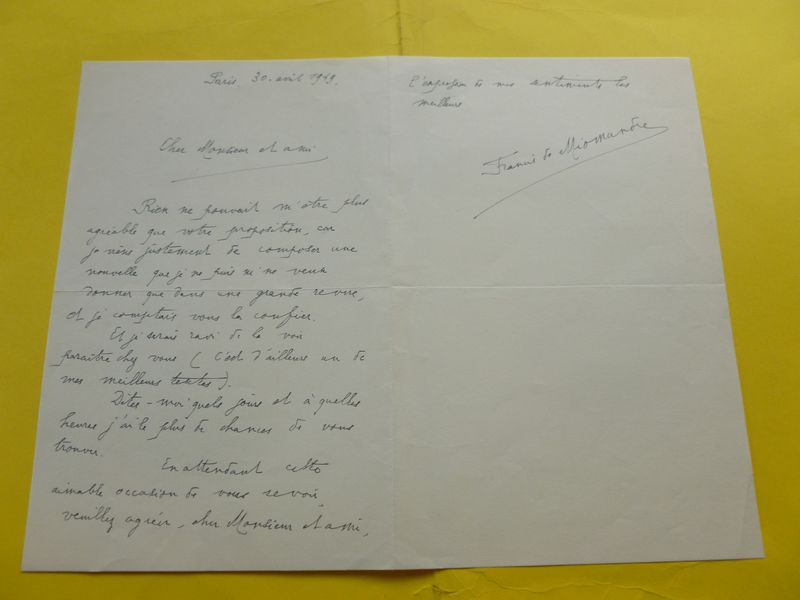 Paris, 30. avril 1949.
Cher Monsieur et ami
Rien ne pouvait m'être plus
agréable que votre proposition, car
je viens justement de composer une
nouvelle que je ne puis ni ne veux
donner que dans une grande revue,
et je comptais vous la confier.
Et je serais ravi de la voir
paraître chez vous (c'est d'ailleurs un de
mes meilleurs textes).
Dites-moi quels jours et à quelles
heures j'ai le plus de chances de vous
trouver.
En attendant cette
aimable occasion de vous revoir,
veuillez agréer, cher Monsieur et ami,
l'expression de mes sentiments les
meilleurs
Francis de Miomandre